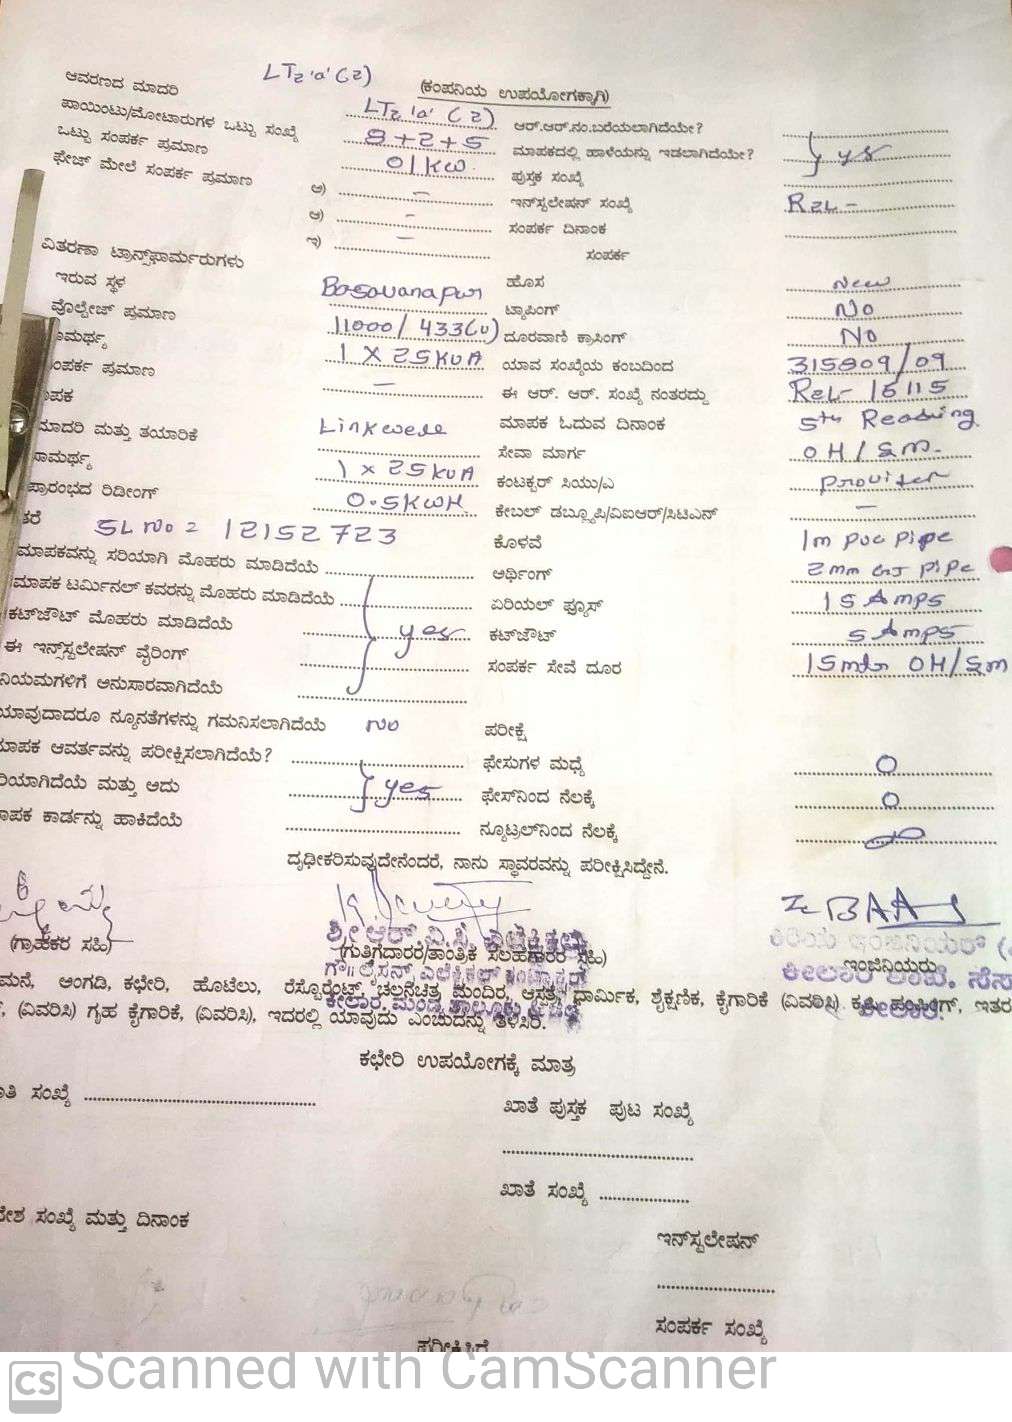 LT2 'a' (2)
ಆವರಣದ ಮಾದರಿ
(ಕಂಪನಿಯ ಉಪಯೋಗಕ್ಕಾಗಿ)
ಪಾಯಿಂಟು/ಮೋಟಾರುಗಳ ಒಟ್ಟು ಸಂಖ್ಯೆ LT2 'a' (2) ಆರ್.ಆರ್.ನಂ.ಬರೆಯಲಾಗಿದೆಯೇ?
ಒಟ್ಟು ಸಂಪರ್ಕ ಪ್ರಮಾಣ 8+2+5 ಮಾಪಕದಲ್ಲಿ ಹಾಳೆಯನ್ನು ಇಡಲಾಗಿದೆಯೇ? yes
ಫೇಜ್ ಮೇಲೆ ಸಂಪರ್ಕ ಪ್ರಮಾಣ 01 KW. ಪುಸ್ತಕ ಸಂಖ್ಯೆ
ಅ) – ಇನ್‌ಸ್ಟಲೇಷನ್ ಸಂಖ್ಯೆ R2L -
ಆ) – ಸಂಪರ್ಕ ದಿನಾಂಕ
ಇ) – ಸಂಪರ್ಕ
ವಿತರಣಾ ಟ್ರಾನ್ಸ್‌ಫಾರ್ಮರುಗಳು
ಇರುವ ಸ್ಥಳ Basavanapur ಹೊಸ New
ವೊಲ್ಟೇಜ್ ಪ್ರಮಾಣ 11000/433(V) ಟ್ಯಾಪಿಂಗ್ No
ಾಮರ್ಥ್ಯ 1 X 25KVA ದೂರವಾಣಿ ಕ್ರಾಸಿಂಗ್ No
ಂಪರ್ಕ ಪ್ರಮಾಣ – ಯಾವ ಸಂಖ್ಯೆಯ ಕಂಬದಿಂದ 315809/09
ಾಪಕ ಈ ಆರ್. ಆರ್. ಸಂಖ್ಯೆ ನಂತರದ್ದು R2L- 15115
ಮಾದರಿ ಮತ್ತು ತಯಾರಿಕೆ Linkwell ಮಾಪಕ ಓದುವ ದಿನಾಂಕ 5th Reading
ಸಾಮರ್ಥ್ಯ 1 x 25KVA ಸೇವಾ ಮಾರ್ಗ OH/Sm.
ಪ್ರಾರಂಭದ ರಿಡೀಂಗ್ 0.5KWH ಕಂಟಕ್ಟರ್ ಸಿಯು/ಎ
ತರೆ SL No = 12152723 ಕೇಬಲ್ ಡಬ್ಲ್ಯೂಪಿ/ವಿಐಆರ್/ಸಿಟಿಎನ್ –
ಮಾಪಕವನ್ನು ಸರಿಯಾಗಿ ಮೊಹರು ಮಾಡಿದೆಯೆ ಕೊಳವೆ 1m PVC Pipe
ಮಾಪಕ ಟರ್ಮಿನಲ್ ಕವರನ್ನು ಮೊಹರು ಮಾಡಿದೆಯೆ ಆರ್ಥಿಂಗ್ 2mm GI Pipe
ಕಟ್‌ಔಟ್ ಮೊಹರು ಮಾಡಿದೆಯೆ yes ಏರಿಯಲ್ ಫ್ಯೂಸ್ 15 Amps
ಈ ಇನ್ಸ್‌ಸ್ಟಲೇಷನ್ ವೈರಿಂಗ್ ಕಟ್‌ಔಟ್ 5 Amps
ನಿಯಮಗಳಿಗೆ ಅನುಸಾರವಾಗಿದೆಯೆ ಸಂಪರ್ಕ ಸೇವೆ ದೂರ 15mtr OH/Sm
ಯಾವುದಾದರೂ ನ್ಯೂನತೆಗಳನ್ನು ಗಮನಿಸಲಾಗಿದೆಯೆ No ಪರೀಕ್ಷೆ
ಮಾಪಕ ಆವರ್ತವನ್ನು ಪರೀಕ್ಷಿಸಲಾಗಿದೆಯೆ? ಫೇಸುಗಳ ಮಧ್ಯೆ 0
ರಿಯಾಗಿದೆಯೆ ಮತ್ತು ಅದು yes ಫೇಸ್‌ನಿಂದ ನೆಲಕ್ಕೆ 0
ಾಪಕ ಕಾರ್ಡನ್ನು ಹಾಕಿದೆಯೆ ನ್ಯೂಟ್ರಲ್‌ನಿಂದ ನೆಲಕ್ಕೆ
ದೃಢೀಕರಿಸುವುದೇನೆಂದರೆ, ನಾನು ಸ್ಥಾವರವನ್ನು ಪರೀಕ್ಷಿಸಿದ್ದೇನೆ.
(ಗ್ರಾಹಕರ ಸಹಿ) (ಗುತ್ತಿಗೆದಾರರ/ತಾಂತ್ರಿಕ ಸಲಹಗಾರರ ಸಹಿ) ಇಂಜಿನಿಯರು
ಮನೆ, ಅಂಗಡಿ, ಕಛೇರಿ, ಹೊಟೆಲು, ರೆಸ್ಟೋರೆಂಟ್, ಚಲನಚಿತ್ರ ಮಂದಿರ, ಆಸ್ಪತ್ರೆ, ಧಾರ್ಮಿಕ, ಶೈಕ್ಷಣಿಕ, ಕೈಗಾರಿಕೆ (ವಿವರಿಸಿ) ಕೃಷಿ ಪಂಪಿಂಗ್, ಇತರ
(ವಿವರಿಸಿ) ಗೃಹ ಕೈಗಾರಿಕೆ, (ವಿವರಿಸಿ), ಇದರಲ್ಲಿ ಯಾವುದು ಎಂಬುದನ್ನು ತಿಳಿಸಿರಿ.
ಕಛೇರಿ ಉಪಯೋಗಕ್ಕೆ ಮಾತ್ರ
ಾತಿ ಸಂಖ್ಯೆ
ಖಾತೆ ಪುಸ್ತಕ ಪುಟ ಸಂಖ್ಯೆ
ಖಾತೆ ಸಂಖ್ಯೆ
ದೇಶ ಸಂಖ್ಯೆ ಮತ್ತು ದಿನಾಂಕ
ಇನ್‌ಸ್ಟಲೇಷನ್
ಸಂಪರ್ಕ ಸಂಖ್ಯೆ
CS Scanned with CamScanner